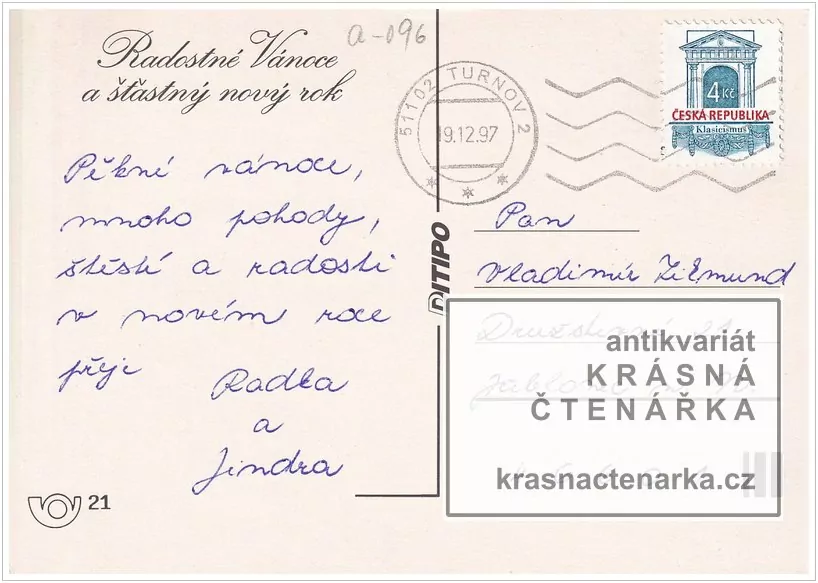 Radostné Vánoce
a šťastný nový rok
a-096
51102 TURNOV 2
19.12.97
4 Kč
ČESKÁ REPUBLIKA
Klasicismus
Pěkné vánoce,
mnoho pohody,
štěstí a radosti
v novém roce
přeje
Radka
a
Jindra
DITIPO
Pan
Vladimír
antikvariát
KRÁSNÁ
ČTENÁŘKA
krasnactenarka.cz
21